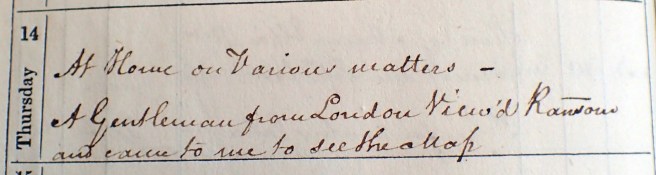 14
Thursday
At Home on Various matters –
A Gentleman from London View'd Ransom
and came to me to see the Map